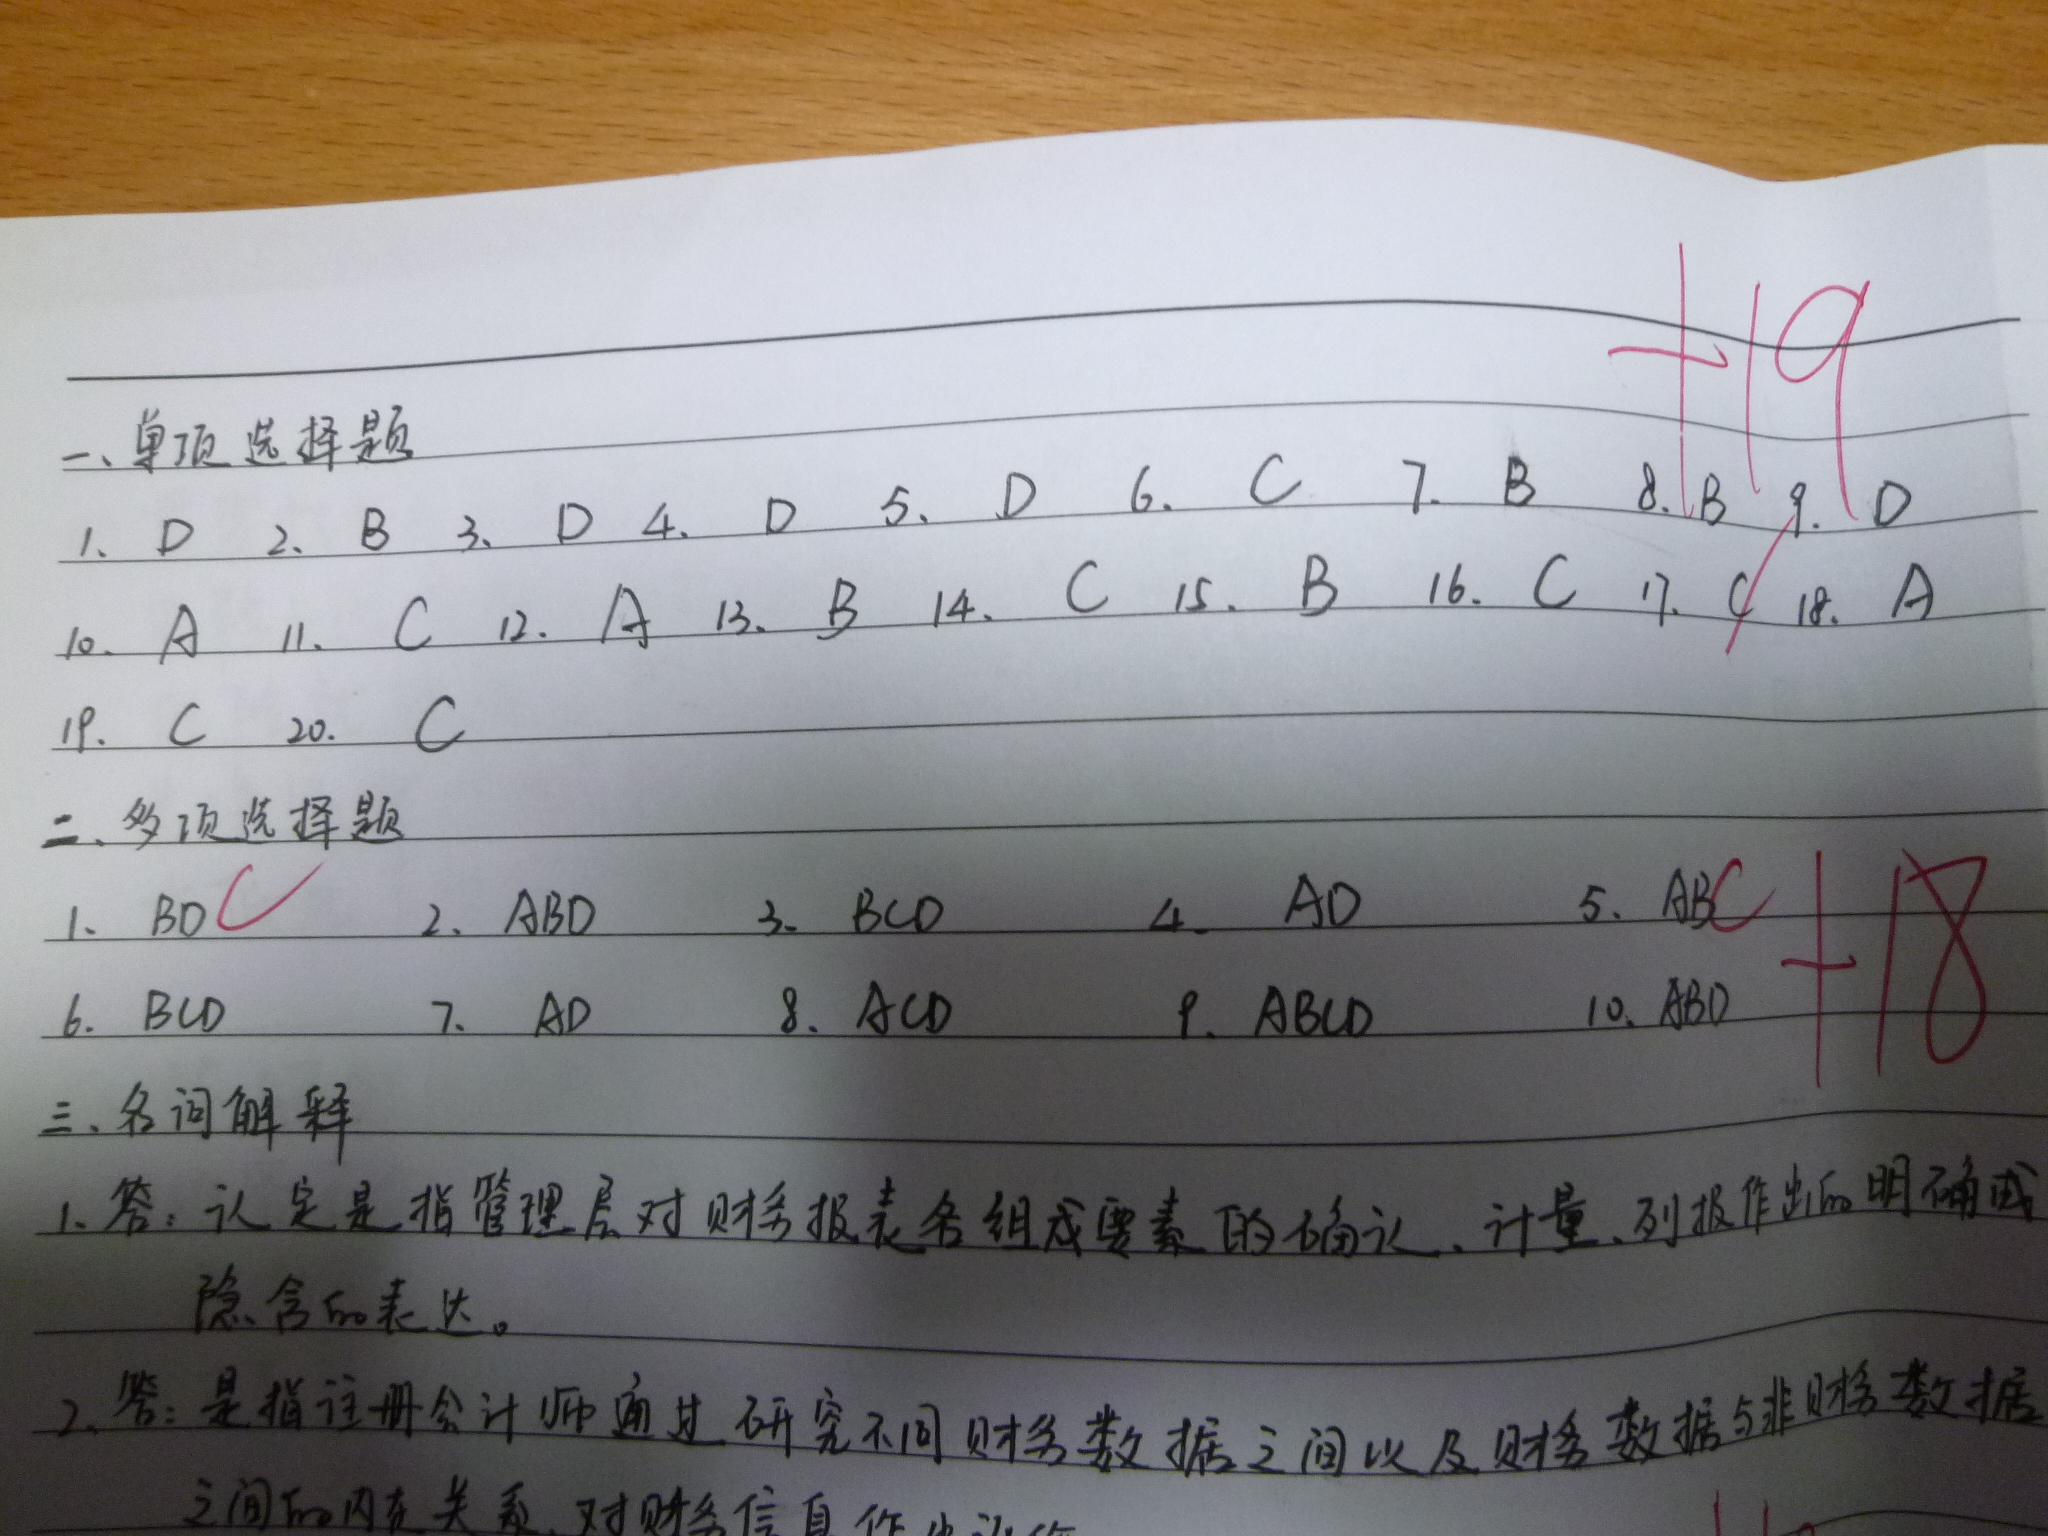 +19
一、单项选择题
1. D 2. B 3. D 4. D 5. D 6. C 7. B 8. B 9. D
10. A 11. C 12. A 13. B 14. C 15. B 16. C 17. C 18. A
19. C 20. C
二、多项选择题
1. BD C 2. ABD 3. BCD 4. AD 5. ABC +18
6. BCD 7. AD 8. ACD 9. ABCD 10. ABD
三、名词解释
1. 答：认定是指管理层对财务报表各组成要素的确认、计量、列报作出的明确或
隐含的表达。
2. 答：是指注册会计师通过研究不同财务数据之间以及财务数据与非财务数据
之间的内在关系，对财务信息作出评价